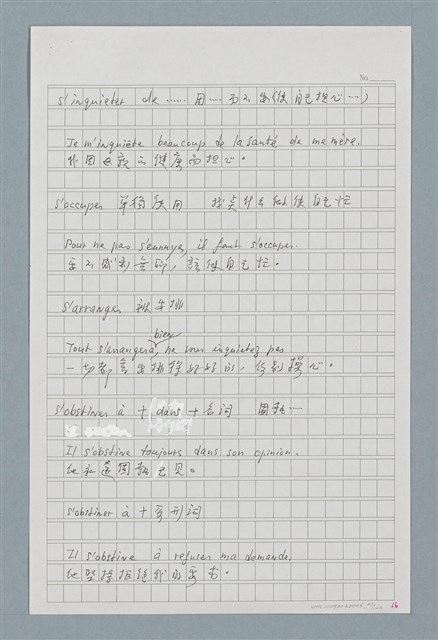 No.
s'inquieter de …… 因 … 而 (使自己担心 …)
Je m'inquiète beaucoup de la santé de ma mère.
我因母親的健康而担心。
s'occuper 單獨使用 找点什么 使自己忙
Pour ne pas s'ennuyer, il faut s'occuper.
要不感到無聊, 該使自己忙。
s'arranger 被安排
bien
Tout s'arrangera, ne vous inquiétez pas
一切都會安排得好好的, 你別操心。
s'obstiner à + dans + 名词 固執…
Il s'obstine toujours dans son opinion.
他永遠固執己見。
s'obstiner à + 原形詞
Il s'obstine à refuser ma demande.
他堅持拒絕我的要求。
16